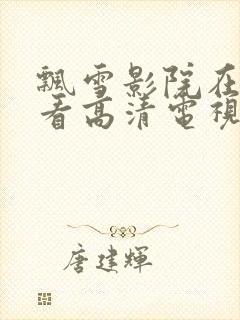 飄雪影院在
看高清電視
唐建輝